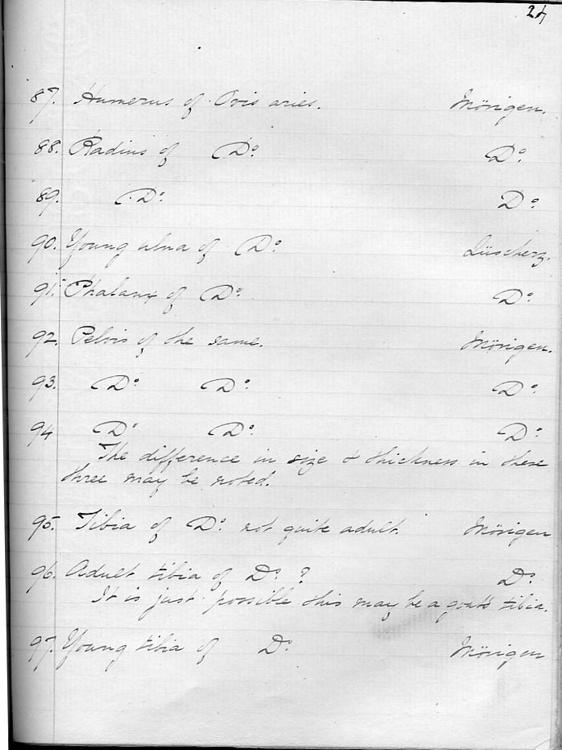 24
87. Humerus of Ovis aries. Mörigen.
88. Radius of Do. Do.
89. Do. Do.
90. Young ulna of Do. Lüscherz.
91. Phalanx of Do. Do.
92. Pelvis of the same. Mörigen.
93. Do. Do. Do.
94 Do. Do. Do.
The difference in size & thickness in these
three may be noted.
95. Tibia of Do. not quite adult. Mörigen
96. Adult tibia of Do. ? Do.
It is just possible this may be a goat's tibia.
97. Young tibia of Do. Mörigen